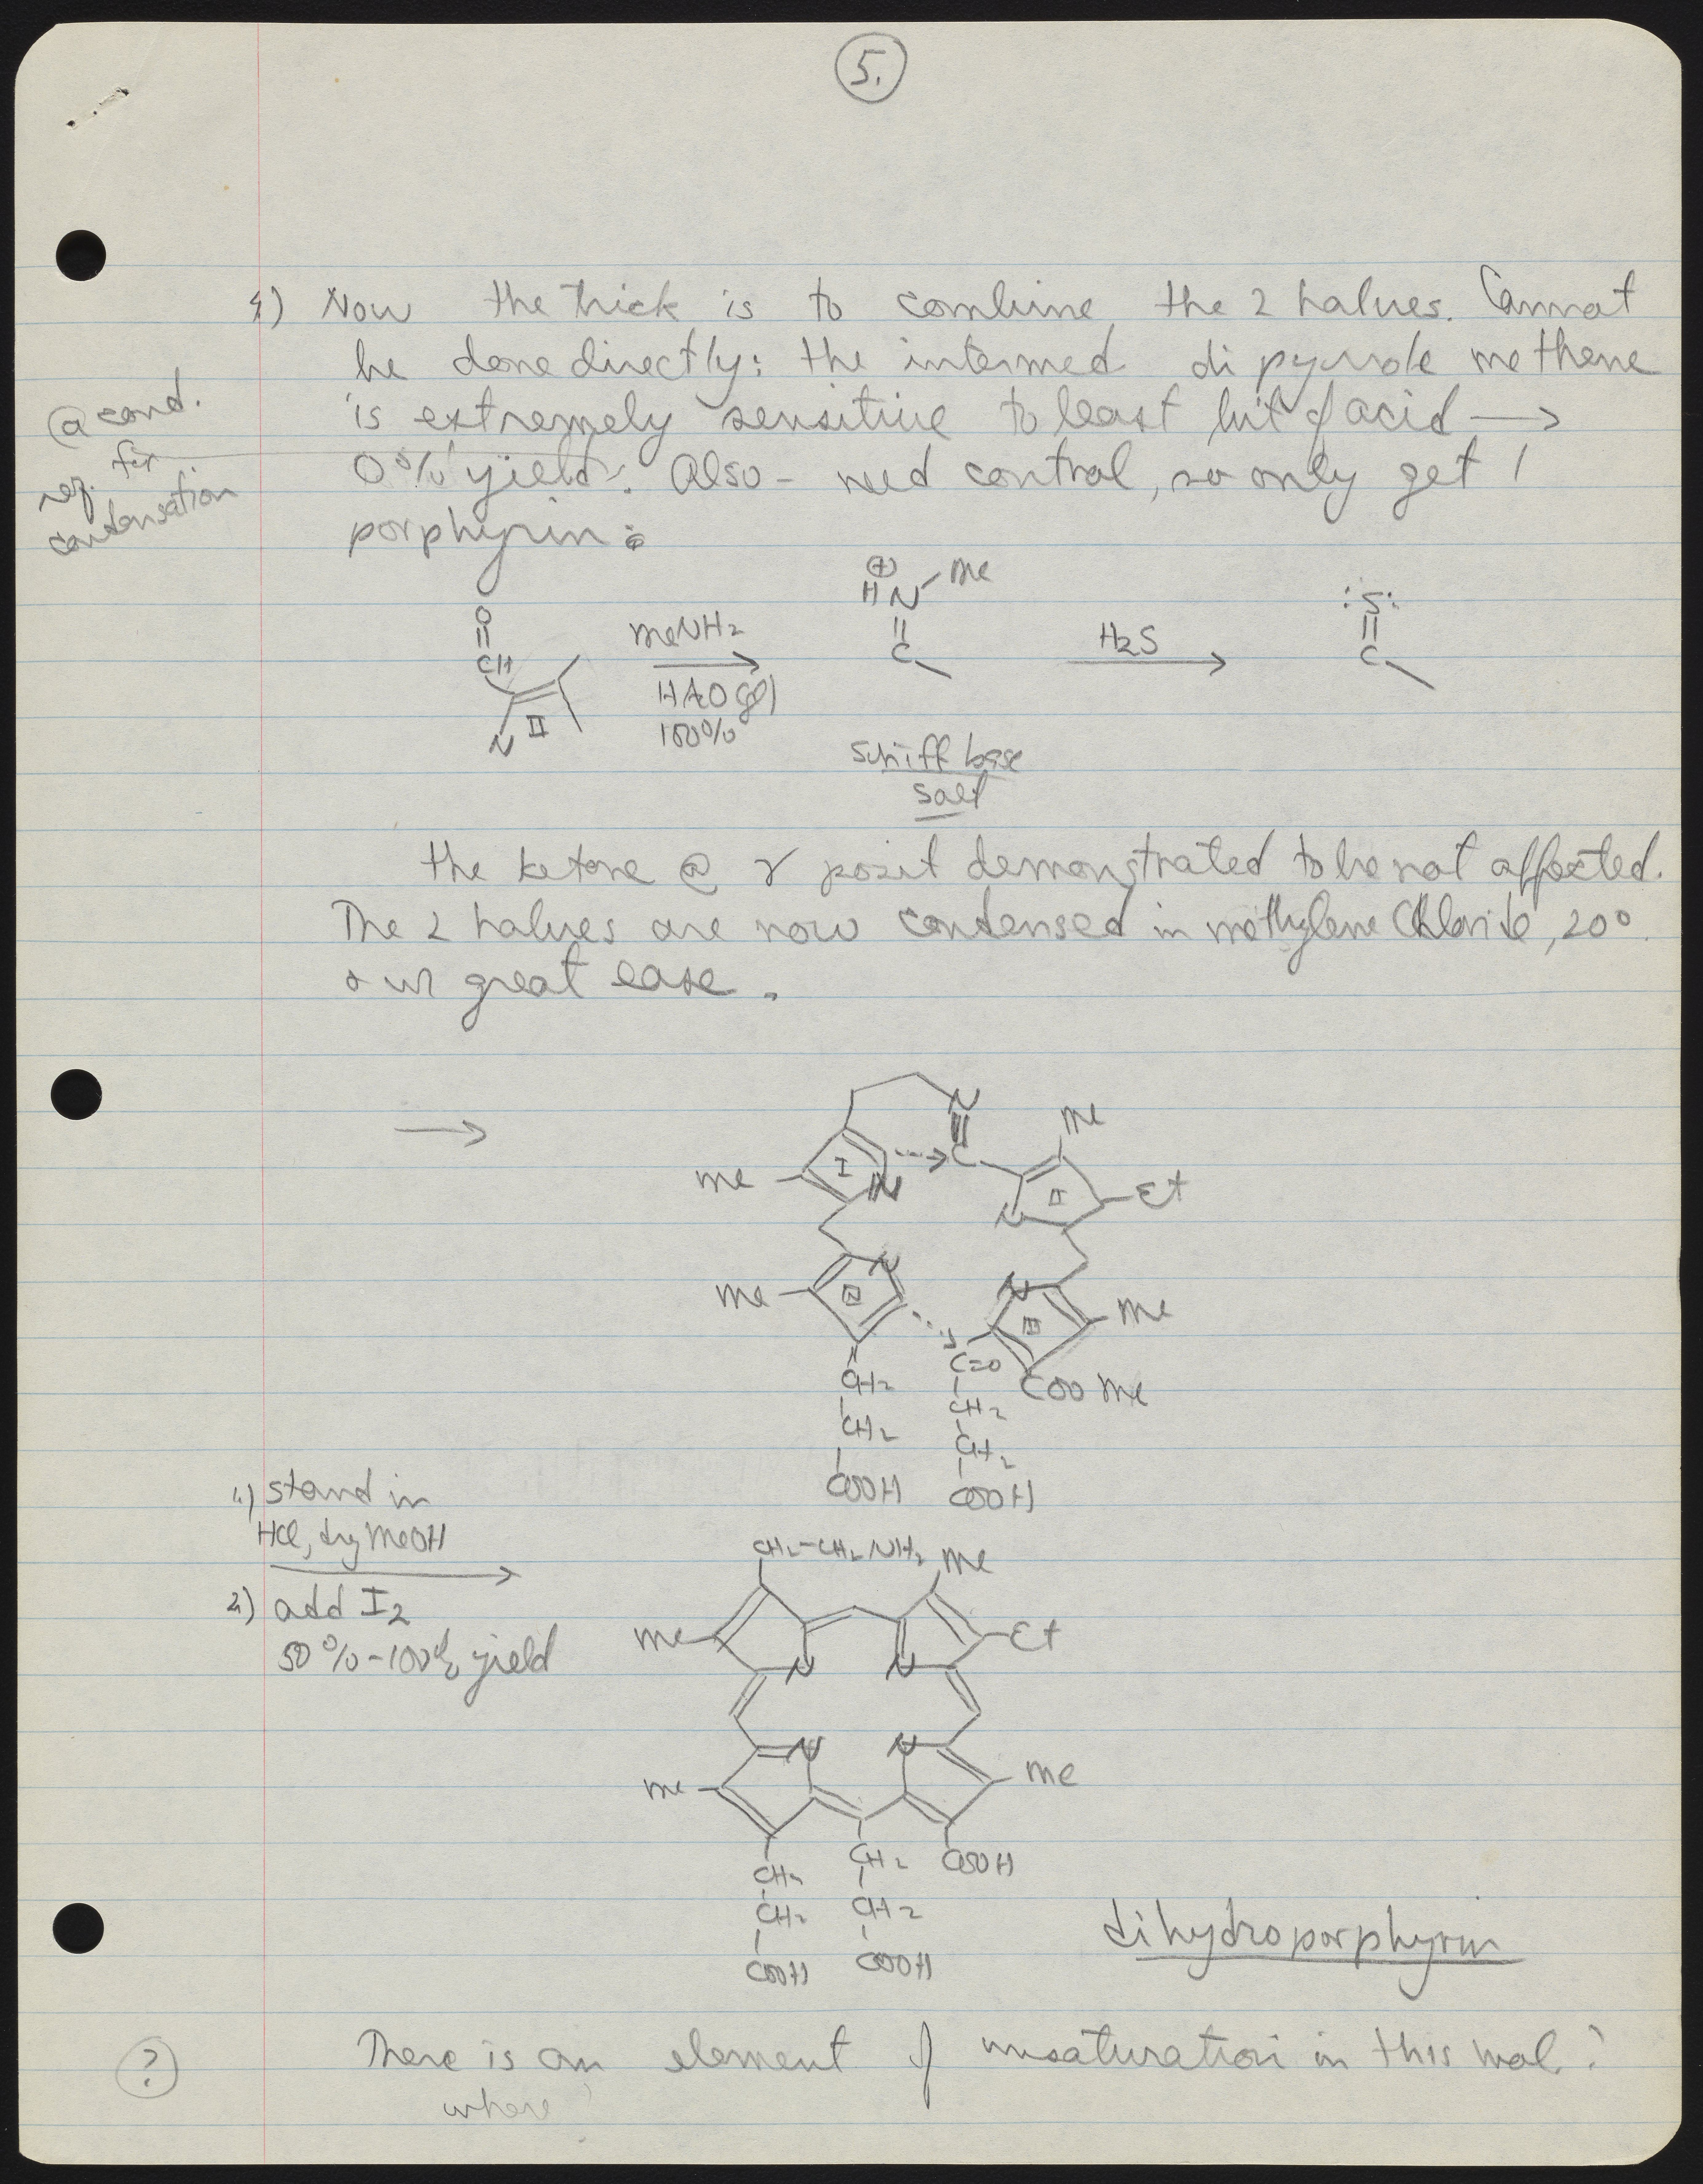 5.
4) Now the thick is to combine the 2 halves. Cannot
be done directly: the intermed di pyrrole methene
is extremely sensitive to least bit of acid →
0% yield. Also - need control, so only get 1
porphyrin:
@ cond.
req. for
condensation
O
CH
N
II
MeNH2
HAO (gl)
100%
⊕
HN Me
C
Schiff base
salt
H2S
:S:
C
the ketone @ γ posit demonstrated to be not affected.
The 2 halves are now condensed in methylene Chloride, 20°
& w great ease.
→
N
C
Me
Me
I
N
II
Et
N
Me
IV
N
N
III
Me
CH2
CH2
COOH
C=O
CH2
CH2
COOH
COO Me
1.) stand in
HCl, dry MeOH
2.) add I2
50% - 100% yield
CH2-CH2NH2
Me
Me
Et
N
N
N
N
Me
Me
CH2
CH2
COOH
CH2
CH2
COOH
COOH
dihydroporphyrin
? There is an element of unsaturation in this mol?
where